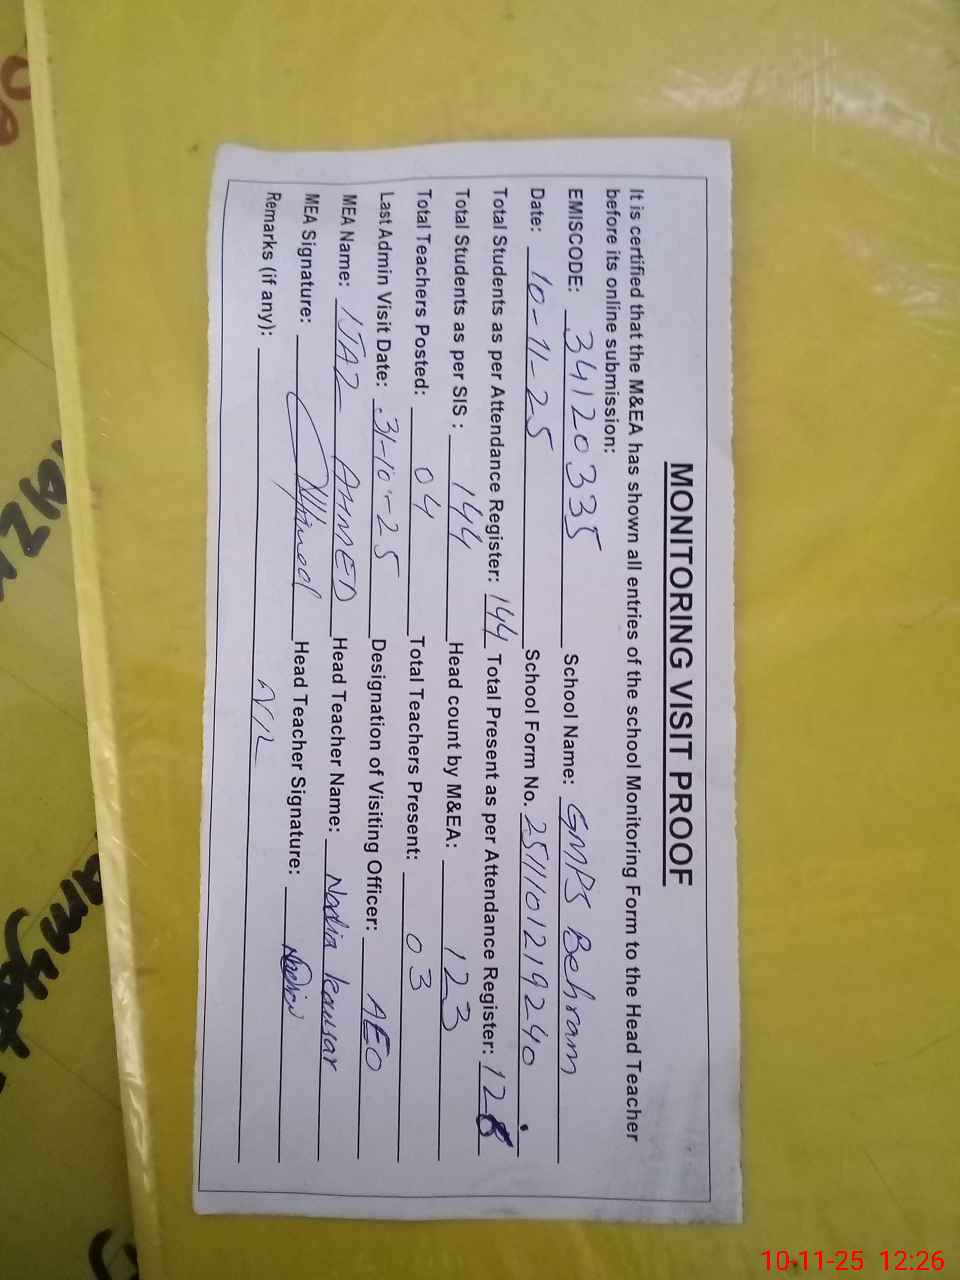 MONITORING VISIT PROOF
It is certified that the M&EA has shown all entries of the school Monitoring Form to the Head Teacher
before its online submission:
EMISCODE: 34120335 School Name: GMPS Behram
Date: 10-11-25 School Form No. 2511101219240
Total Students as per Attendance Register: 144 Total Present as per Attendance Register:
Total Students as per SIS: 144 Head count by M&EA: 123
Total Teachers Posted: 04 Total Teachers Present: 03
Last Admin Visit Date: 31-10-25 Designation of Visiting Officer: AEO
MEA Name: IJAZ AHMED Head Teacher Name: Nadia kausar
MEA Signature: Ahmed Head Teacher Signature: Nadia
Remarks (if any): NIL
10-11-25 12:26